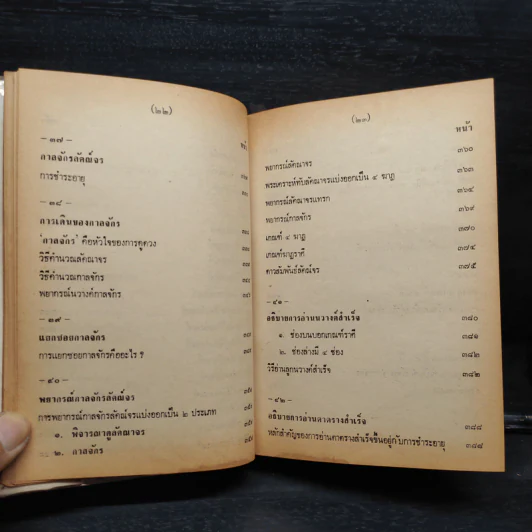 (๒๒)
– ๓๗ –
กาลจักรลัคณ์จร
การชำระอายุ
– ๓๘ –
การเดินของกาลจักร
'กาลจักร' คือหัวใจของการดูดวง
วิธีคำนวณลัคณาจร
วิธีคำนวณกาลจักร
พยากรณ์นวางค์กาลจักร
– ๓๙ –
แยกซอยกาลจักร
การแยกซอยกาลจักรคืออะไร ?
– ๔๐ –
พยากรณ์กาลจักรลัคณ์จร
การพยากรณ์กาลจักรลัคณ์จรแบ่งออกเป็น ๒ ประเภท
๑. พิจารณาดูลัคณาจร
๒. กาลจักร
(๒๓)
หน้า
พยากรณ์ลัคณาจร ๓๖๐
พระเคราะห์ทับลัคณาจรแบ่งออกเป็น ๔ ฆาฏ ๓๖๓
พยากรณ์ลัคณาจรแทรก ๓๖๔
พยากรณ์กาลจักร ๓๖๙
เกณฑ์ ๔ ฆาฏ ๓๗๐
เกณฑ์ฆาฏราศี ๓๗๔
ดาวสัมพันธ์ลัคณ์จร ๓๗๕
– ๔๑ –
อธิบายการอ่านนวางค์สำเร็จ ๓๘๐
๑. ช่องบนบอกเกณฑ์ราศี ๓๘๑
๒. ช่องล่างมี ๔ ช่อง ๓๘๒
วิธีอ่านลูกนวางค์สำเร็จ ๓๘๒
– ๔๒ –
อธิบายการอ่านตาตรางสำเร็จ ๓๘๘
หลักสำคัญของการอ่านตาตรางสำเร็จขึ้นอยู่กับการชำระอายุ ๓๘๘